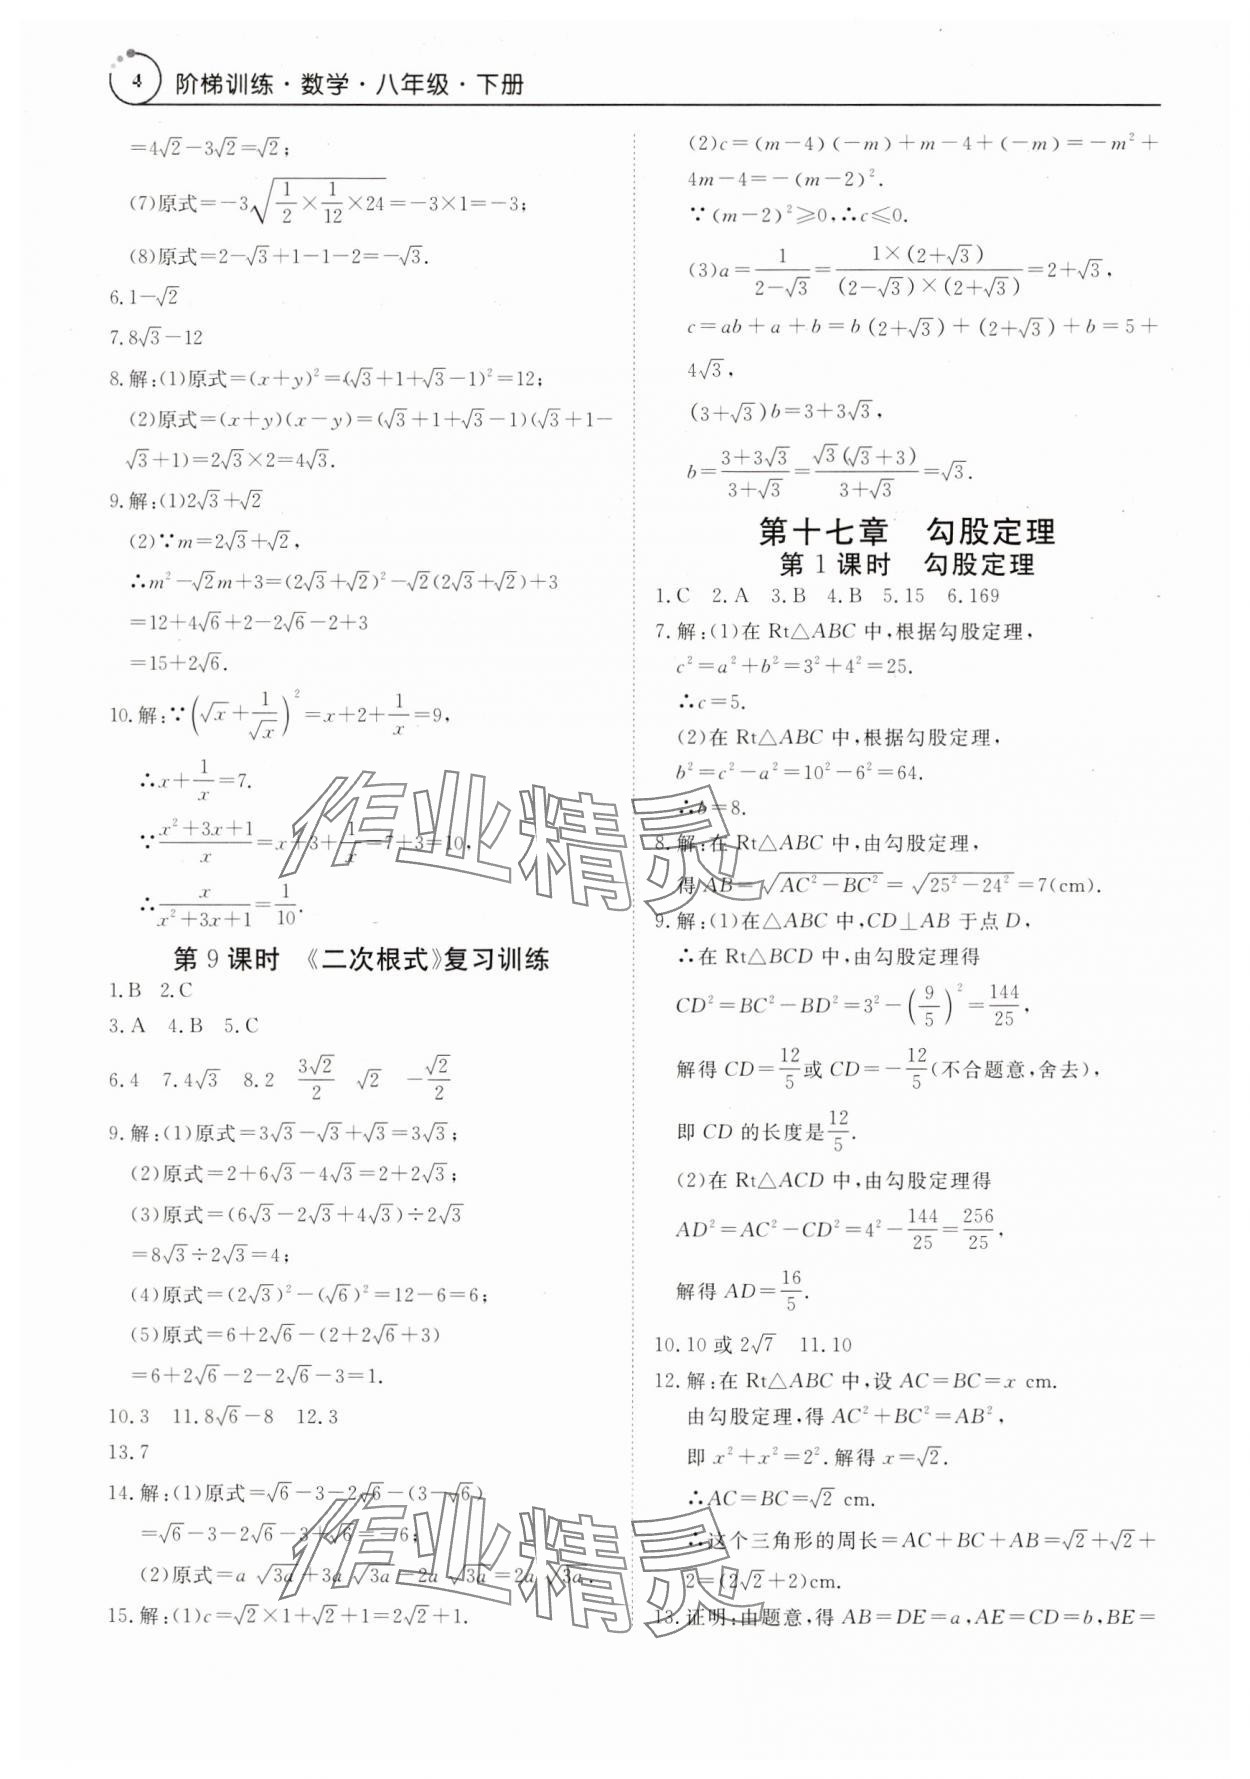 4 阶梯训练·数学·八年级·下册
=4√2-3√2=√2;
(7)原式=-3√(1/2×1/12×24)=-3×1=-3;
(8)原式=2-√3+1-1-2=-√3.
6.1-√2
7.8√3-12
8.解:(1)原式=(x+y)²=(√3+1+√3-1)²=12;
(2)原式=(x+y)(x-y)=(√3+1+√3-1)(√3+1-
√3+1)=2√3×2=4√3.
9.解:(1)2√3+√2
(2)∵m=2√3+√2,
∴m²-√2m+3=(2√3+√2)²-√2(2√3+√2)+3
=12+4√6+2-2√6-2+3
=15+2√6.
10.解:∵(√x+1/√x)²=x+2+1/x=9,
∴x+1/x=7.
∵(x²+3x+1)/x=x+3+1/x=7+3=10,
∴x/(x²+3x+1)=1/10.
第9课时 《二次根式》复习训练
1.B 2.C
3.A 4.B 5.C
6.4 7.4√3 8.2 3√2/2 √2 -√2/2
9.解:(1)原式=3√3-√3+√3=3√3;
(2)原式=2+6√3-4√3=2+2√3;
(3)原式=(6√3-2√3+4√3)÷2√3
=8√3÷2√3=4;
(4)原式=(2√3)²-(√6)²=12-6=6;
(5)原式=6+2√6-(2+2√6+3)
=6+2√6-2-2√6-3=1.
10.3 11.8√6-8 12.3
13.7
14.解:(1)原式=√6-3-2√6-(3-√6)
=√6-3-2√6-3+√6=-6;
(2)原式=a√3a+3a√3a-2a√3a=2a√3a.
15.解:(1)c=√2×1+√2+1=2√2+1.
(2)c=(m-4)(-m)+m-4+(-m)=-m²+
4m-4=-(m-2)².
∵(m-2)²≥0,∴c≤0.
(3)a=1/(2-√3)=1×(2+√3)/((2-√3)×(2+√3))=2+√3,
c=ab+a+b=b(2+√3)+(2+√3)+b=5+
4√3,
(3+√3)b=3+3√3,
b=(3+3√3)/(3+√3)=√3(√3+3)/(3+√3)=√3.
第十七章 勾股定理
第1课时 勾股定理
1.C 2.A 3.B 4.B 5.15 6.169
7.解:(1)在Rt△ABC中,根据勾股定理,
c²=a²+b²=3²+4²=25.
∴c=5.
(2)在Rt△ABC中,根据勾股定理,
b²=c²-a²=10²-6²=64.
∴b=8.
8.解:在Rt△ABC中,由勾股定理,
得AB=√(AC²-BC²)=√(25²-24²)=7(cm).
9.解:(1)在△ABC中,CD⊥AB于点D,
∴在Rt△BCD中,由勾股定理得
CD²=BC²-BD²=3²-(9/5)²=144/25,
解得CD=12/5或CD=-12/5(不合题意,舍去),
即CD的长度是12/5.
(2)在Rt△ACD中,由勾股定理得
AD²=AC²-CD²=4²-144/25=256/25,
解得AD=16/5.
10.10或2√7 11.10
12.解:在Rt△ABC中,设AC=BC=x cm.
由勾股定理,得AC²+BC²=AB²,
即x²+x²=2².解得x=√2.
∴AC=BC=√2 cm.
∴这个三角形的周长=AC+BC+AB=√2+√2+
2=(2√2+2)cm.
13.证明:由题意,得AB=DE=a,AE=CD=b,BE=
作业精灵
作业精灵